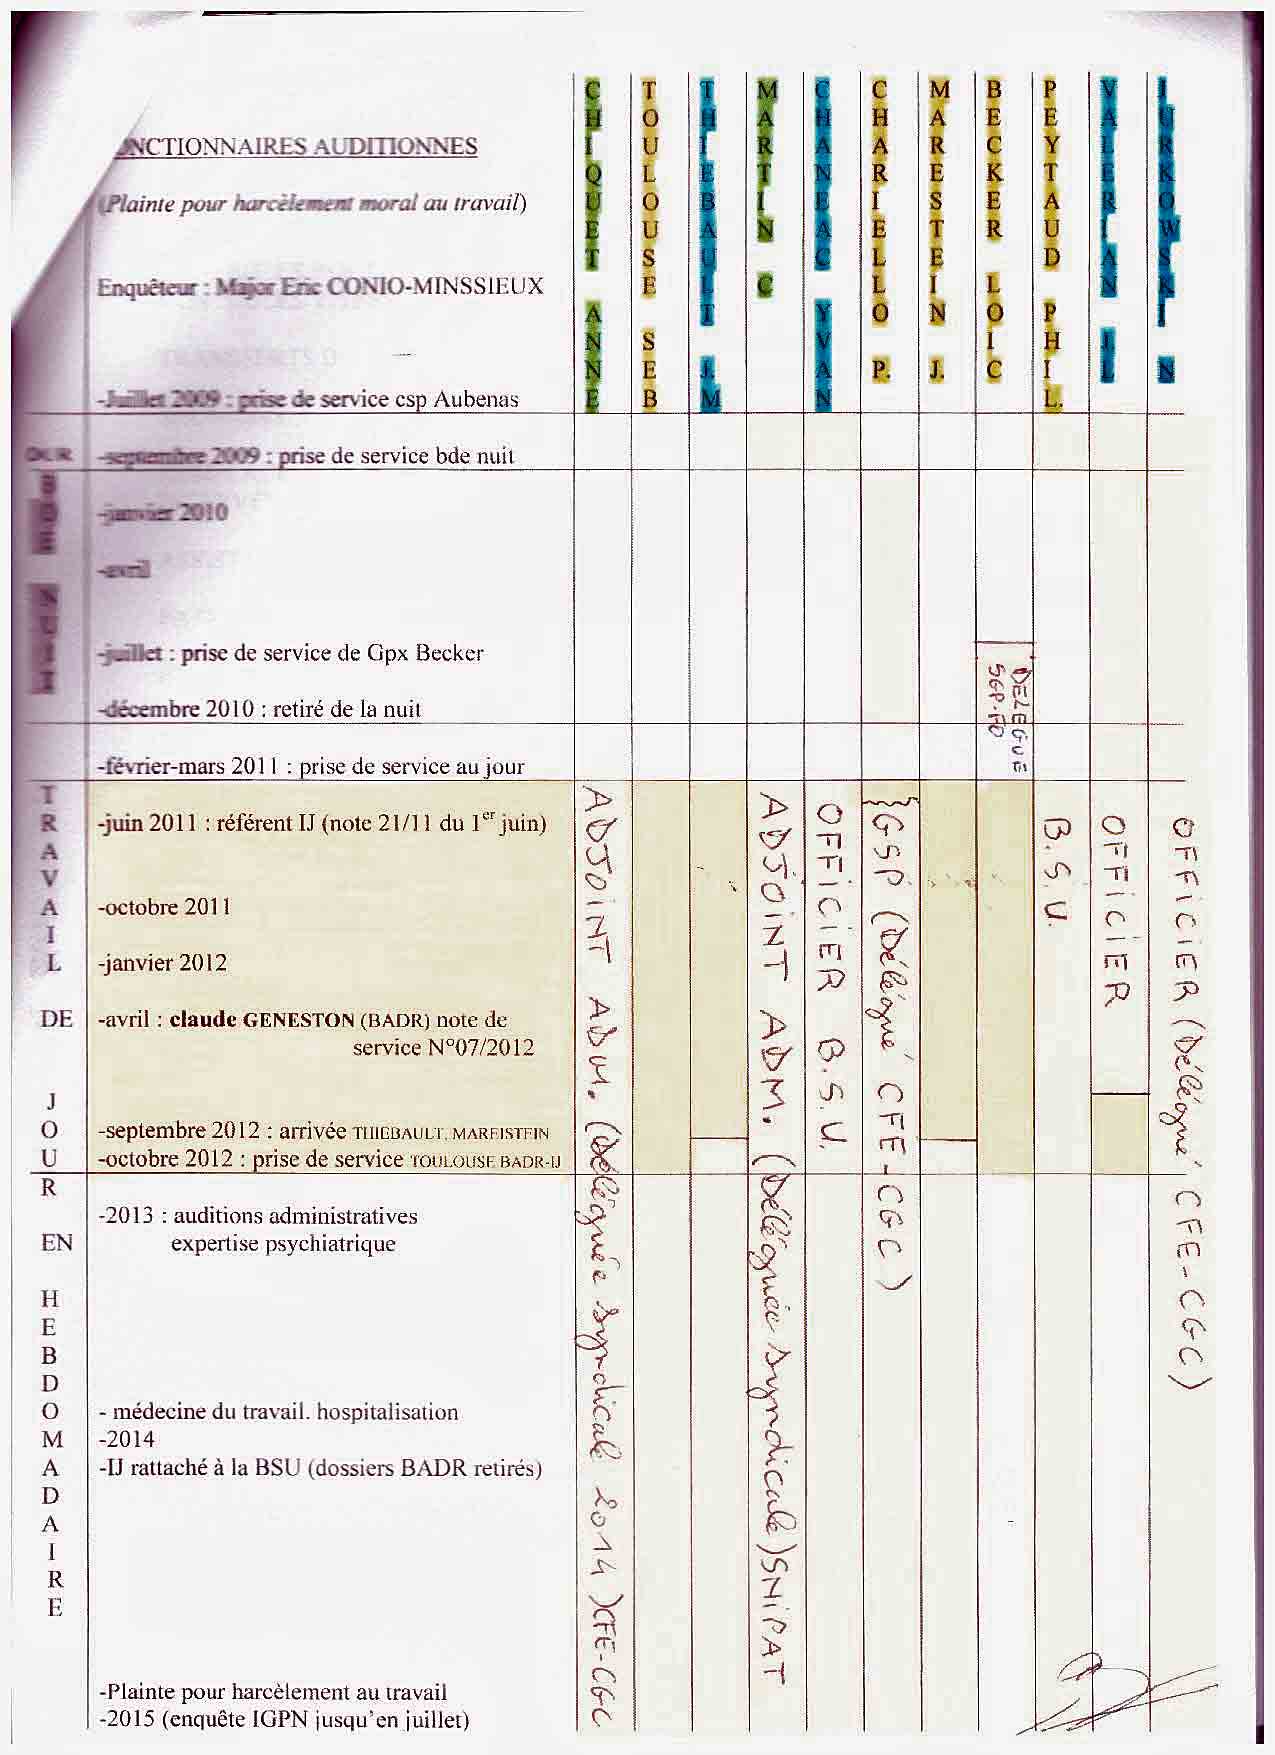 FONCTIONNAIRES AUDITIONNES
(Plainte pour harcèlement moral au travail)
Enquêteur : Major Eric CONIO-MINSSIEUX
CHIQUET ANNE
TOULOUSE SEB
THIEBAULT J.M
MARTIN C
CHANEAC YVAN
CHARIELLO P.
MARESTEIN J.
BECKER LOIC
PEYTAUD PHIL.
VALERIAN J.L
IURKOWSKI N
-Juillet 2009 : prise de service csp Aubenas
-septembre 2009 : prise de service bde nuit
-janvier 2010
-avril
-juillet : prise de service de Gpx Becker
-décembre 2010 : retiré de la nuit
-février-mars 2011 : prise de service au jour
-juin 2011 : référent IJ (note 21/11 du 1er juin)
-octobre 2011
-janvier 2012
-avril : claude GENESTON (BADR) note de
service N°07/2012
-septembre 2012 : arrivée THIEBAULT. MAREISTEIN
-octobre 2012 : prise de service TOULOUSE BADR-IJ
-2013 : auditions administratives
expertise psychiatrique
- médecine du travail. hospitalisation
-2014
-IJ rattaché à la BSU (dossiers BADR retirés)
-Plainte pour harcèlement au travail
-2015 (enquête IGPN jusqu'en juillet)
NUIT
TRAVAIL DE JOUR EN HEBDOMADAIRE
ADJOINT ADM. (Déléguée syndicale 2014) CFE-CGC
ADJOINT ADM. (Déléguée syndicale) SNIPAT
OFFICIER B.S.U.
GSP (Délégué CFE-CGC)
DELEGUE
SGP-FO
B.S.U.
OFFICIER
OFFICIER (Délégué CFE-CGC)